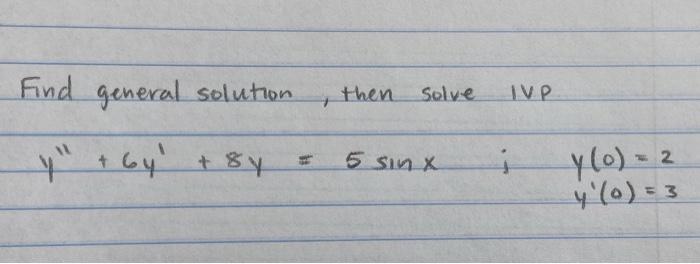 Find general solution, then solve IVP
y'' + 6y' + 8y = 5 sin x ; y(0) = 2
y'(0) = 3